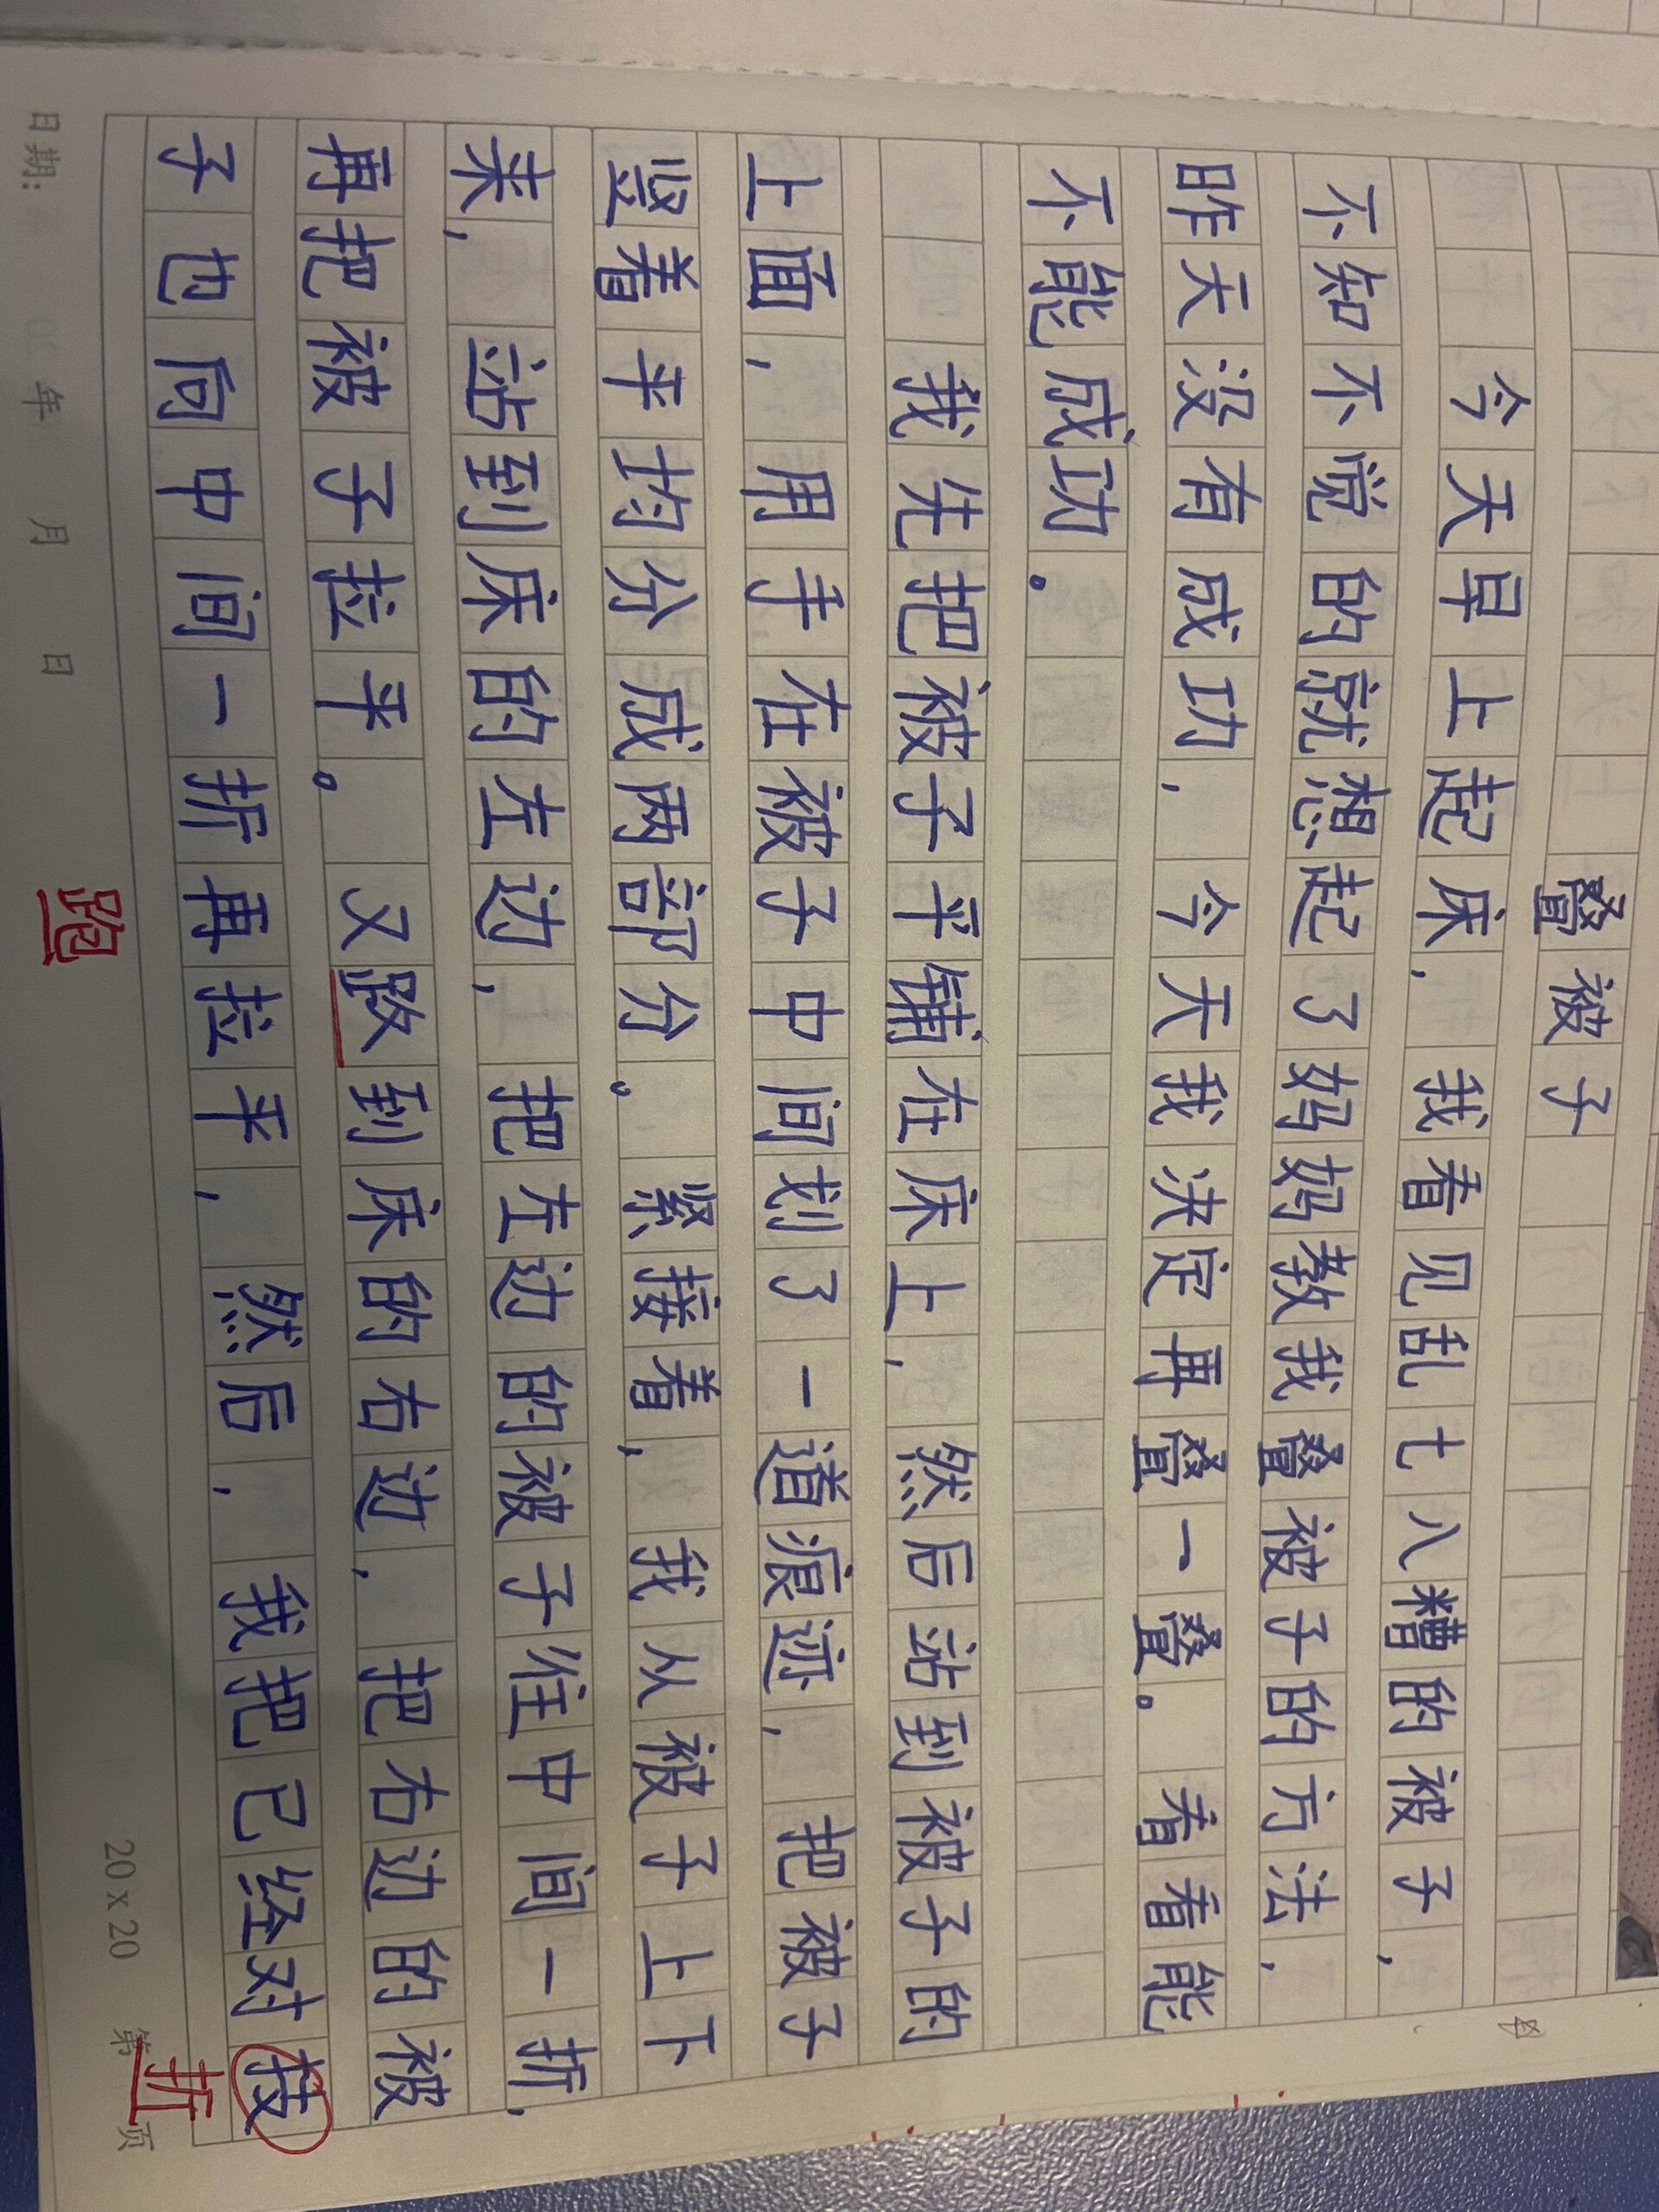 叠被子
今天早上起床，我看见乱七八糟的被子，
不知不觉的就想起了妈妈教我叠被子的方法，
昨天没有成功，今天我决定再叠一叠。看看能
不能成功。
我先把被子平铺在床上，然后站到被子的
上面，用手在被子中间划了一道痕迹，把被子
竖着平均分成两部分。紧接着，我从被子上下
来，站到床的左边，把左边的被子往中间一折，
再把被子拉平。又跑到床的右边，把右边的被
子也向中间一折再拉平，然后，我把已经对技
跑
折
日期： 年 月 日
20×20 第 页